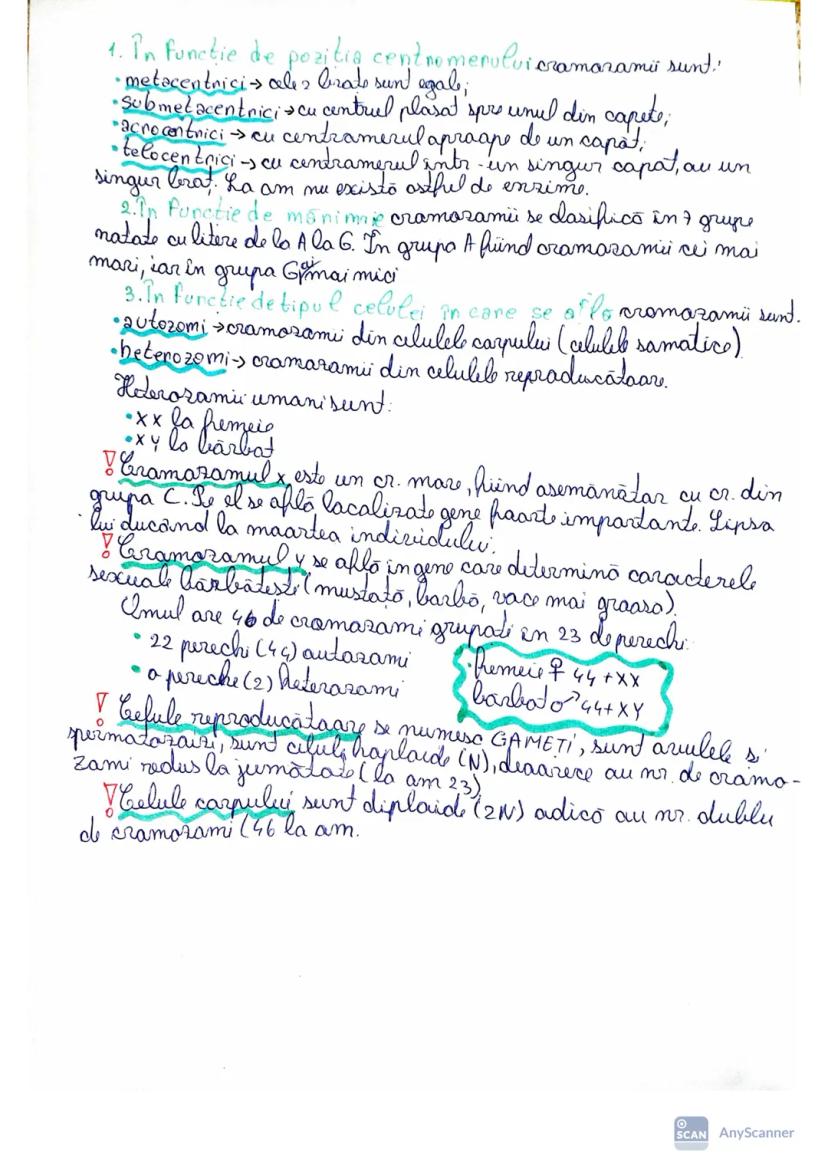 1. În funcție de poziția centromerului cromozomii sunt:
• metacentrici → cele 2 brațe sunt egale;
• submetacentrici → cu centrul plasat spre unul din capete;
• acrocentrici → cu centromerul aproape de un capăt;
• telocentrici → cu centromerul într-un singur capăt, au un
singur braț. La om nu există astfel de enzime.
2. În funcție de mărime cromozomii se clasifică în 7 grupe
notate cu litere de la A la G. În grupa A fiind cromozomii cei mai
mari, iar în grupa G cei mai mici
3. În funcție de tipul celulei în care se află cromozomii sunt.
• autozomi → cromozomi din celulele corpului (celulele somatice)
• heterozomi → cromozomii din celulele reproducătoare.
Heterozomii umani sunt:
• XX la femeie
• XY la bărbat
! Cromozomul x este un cr. mare, fiind asemănător cu cr. din
grupa C. Pe el se află localizate gene foarte importante. Lipsa
lui ducând la moartea individului.
! Cromozomul y se află în gene care determină caracterele
sexuale bărbătești (mustață, barbă, voce mai groasă).
Omul are 46 de cromozomi grupați în 23 de perechi:
• 22 perechi (44) autozomi
• o pereche (2) heterozomi
• femeie ♀ 44 + XX
bărbat ♂ 44 + XY
! Celule reproducătoare se numesc GAMEȚI, sunt ovulele și
spermatozoizi, sunt celule haploide (N), deoarece au nr. de cromo-
zomi redus la jumătate (la om 23)
! Celule corpului sunt diploide (2N) adică au nr. dublu
de cromozomi (46 la om.
SCAN AnyScanner